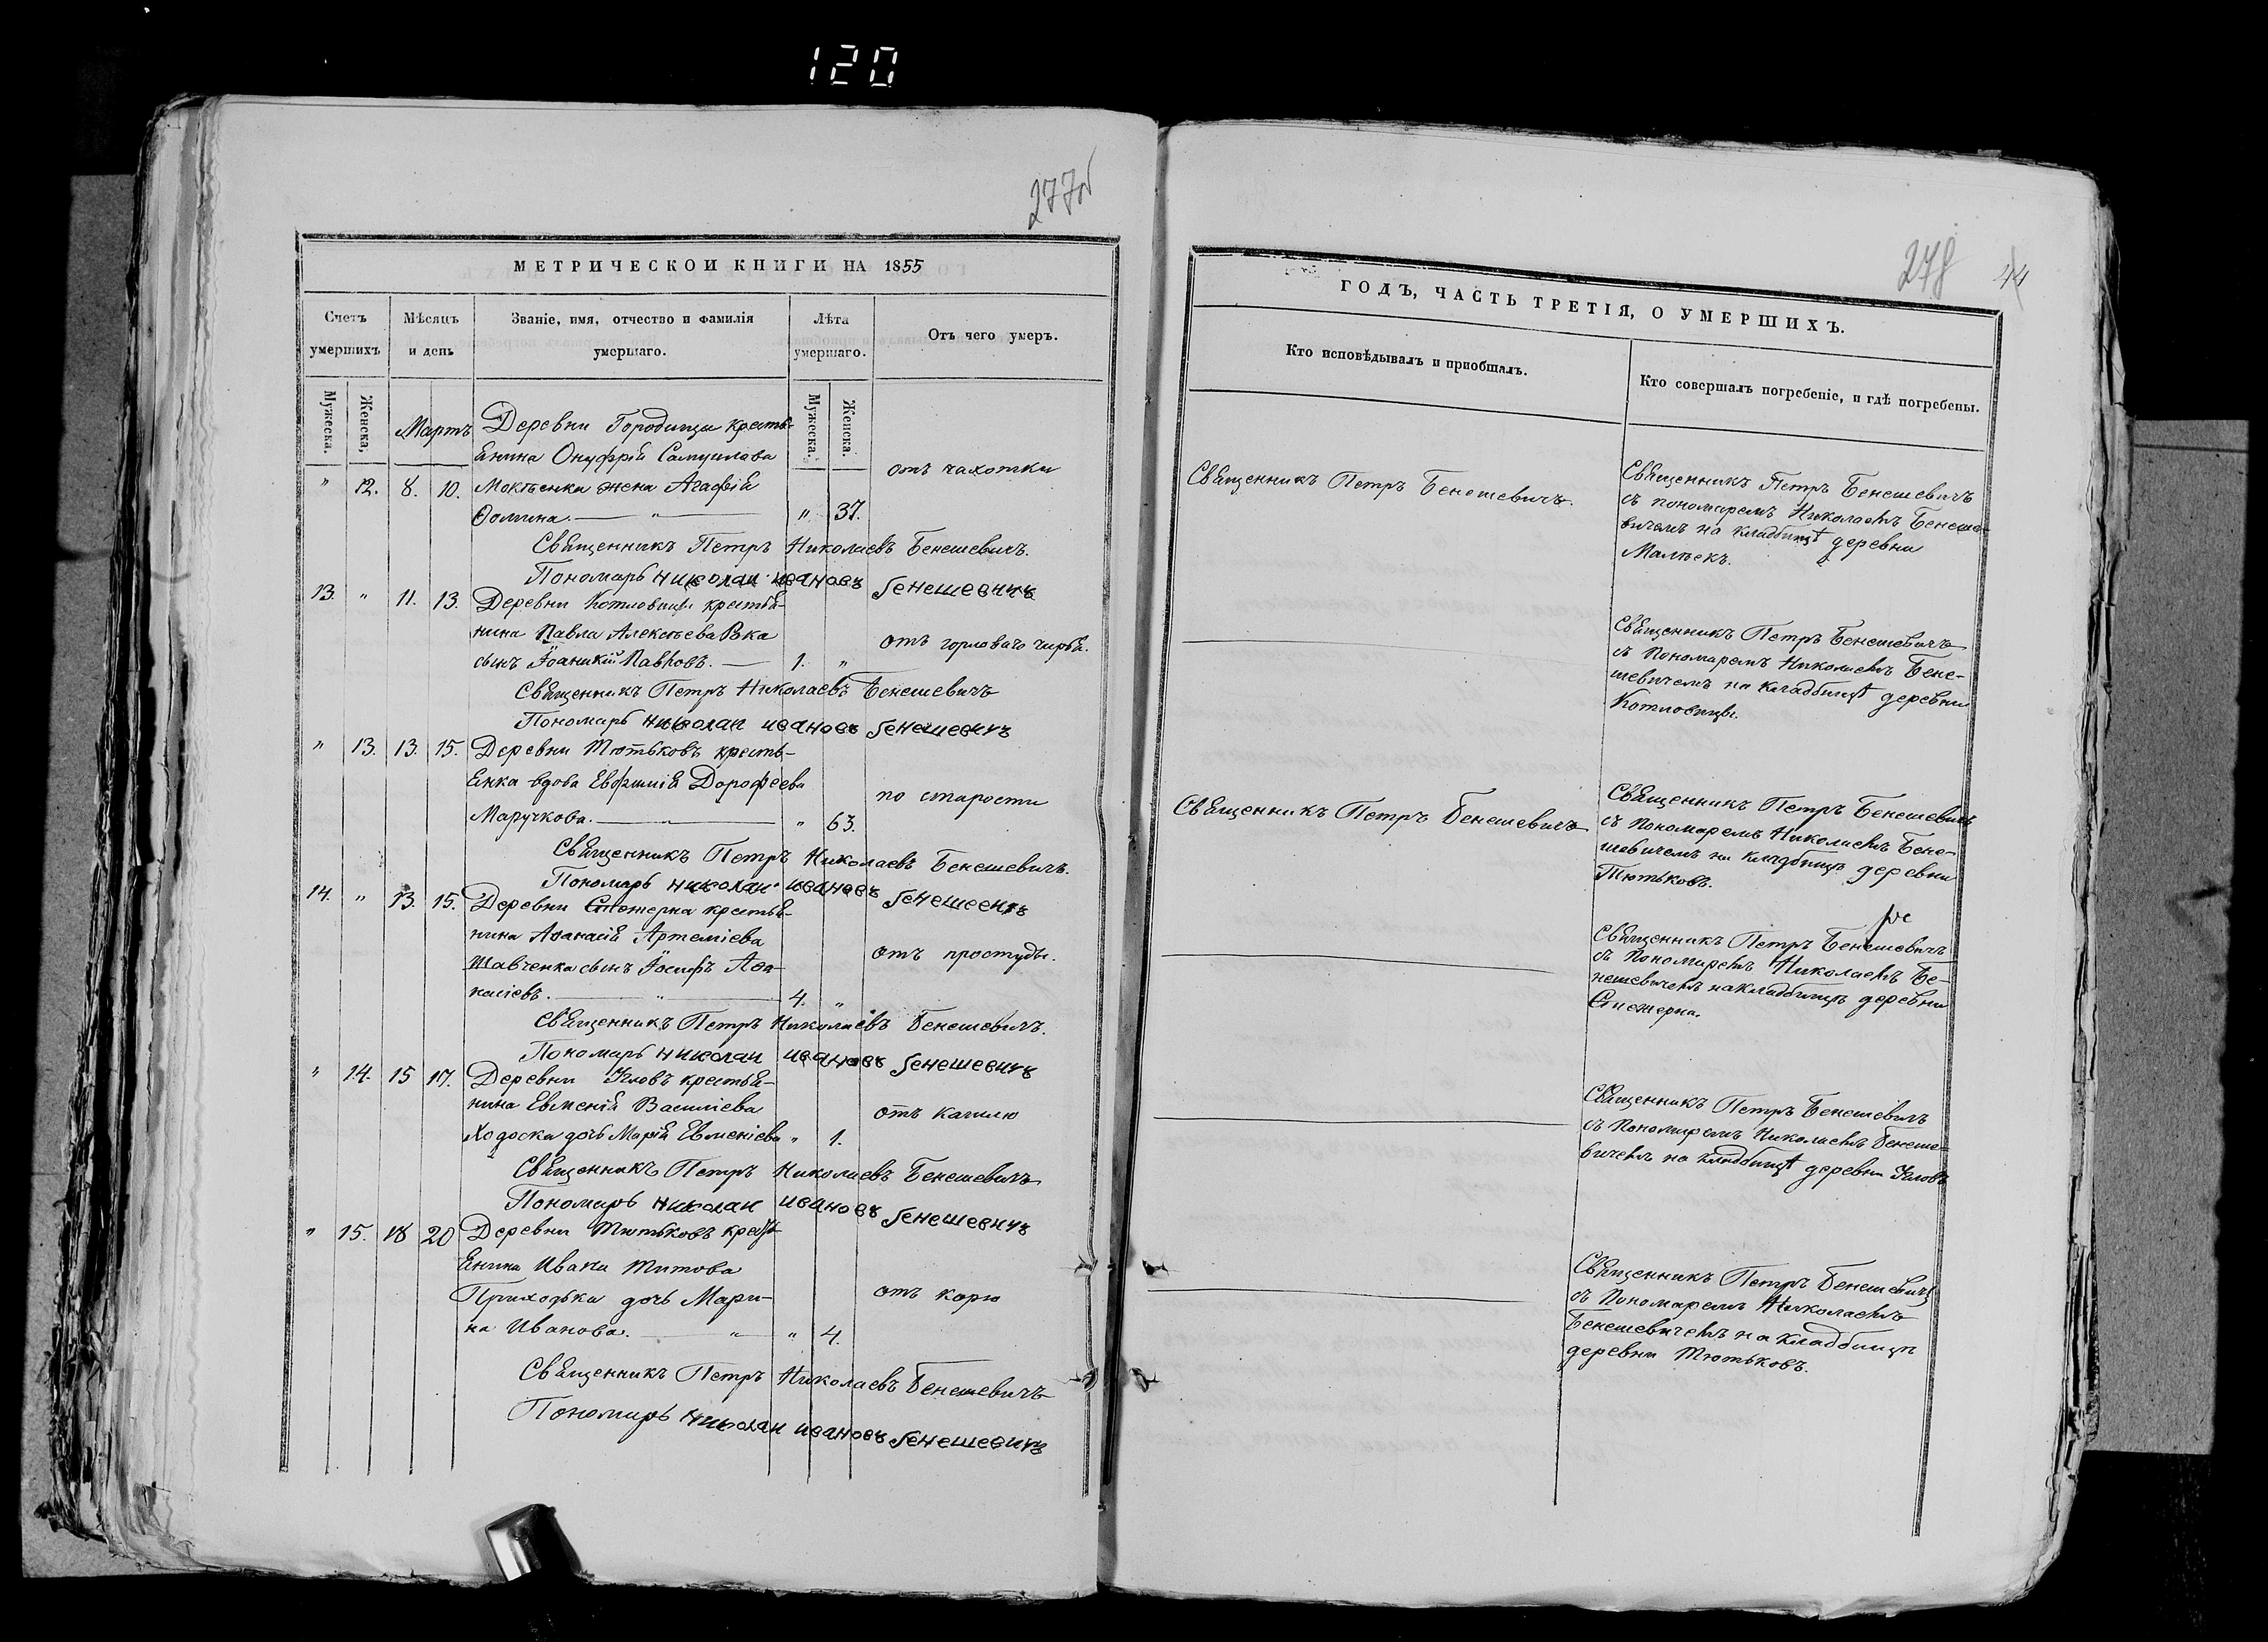 120
277об
МЕТРИЧЕСКОЙ КНИГИ НА 1855
Счетъ умершихъ
Мѣсяцъ и день
Званіе, имя, отчество и фамилія умершаго.
Лѣта умершаго.
Отъ чего умеръ.
Мужеска.
Женска.
Мужеска.
Женска.
Мартъ
Деревни Городищи кресть-
янина Онуфрія Самуилова
" 12. 8. 10. жена Агафія
Ѳомина. " " 37. отъ чахотки
Священникъ Петръ Николаевъ Бенешевичъ.
Пономарь Николай Ивановъ Бенешевичъ
13. " 11. 13. Деревни Котловицы крестья-
нина Павла Алексѣева Рака
сынъ Іоаникій Павловъ. 1. " отъ горловаго чирья.
Священникъ Петръ Николаевъ Бенешевичъ
Пономарь Николай Ивановъ Бенешевичъ
" 13. 13. 15. Деревни Тютьковъ кресть-
янка вдова Евфимія Дорофеева
Маручкова. " " 63. по старости
Священникъ Петръ Николаевъ Бенешевичъ.
Пономарь Николай Ивановъ Бенешевичъ
14. " 13. 15. Деревни крестья-
нина Аѳанасія Артеміева
Шавченка сынъ Іосифъ Аѳа-
насіевъ. " 4. " отъ простуды.
Священникъ Петръ Николаевъ Бенешевичъ.
Пономарь Николай Ивановъ Бенешевичъ
" 14. 15 17. Деревни Угловъ крестья-
нина Евменія Василіева
Ходоска дочь Марія Евменіева " 1. отъ кашлю
Священникъ Петръ Николаевъ Бенешевичъ
Пономарь Николай Ивановъ Бенешевичъ
" 15. 18 20 Деревни Тютьковъ крест-
янина Ивана Титова
Приходька дочь Мари-
на Иванова. " " 4. отъ корю
Священникъ Петръ Николаевъ Бенешевичъ
Пономарь Николай Ивановъ Бенешевичъ
278 44
ГОДЪ, ЧАСТЬ ТРЕТІЯ, О УМЕРШИХЪ.
Кто исповѣдывалъ и пріобщалъ.
Кто совершалъ погребеніе, и гдѣ погребены.
Священникъ Петръ Бенешевичъ.
Священникъ Петръ Бенешевичъ
съ пономаремъ Николаемъ Бенеше-
вичемъ на кладбищѣ деревни
Малѣекъ.
Священникъ Петръ Бенешевичъ
съ Пономаремъ Николаемъ Бене-
шевичемъ на кладбищѣ деревни
Котловицы.
Священникъ Петръ Бенешевичъ
Священникъ Петръ Бенешевичъ
съ Пономаремъ Николаемъ Бене-
шевичемъ на кладбищѣ деревни
Тютьковъ.
Священникъ Петръ Бенешевичъ
съ Пономаремъ Николаемъ Бе-
нешевичемъ на кладбищѣ деревни
Священникъ Петръ Бенешевичъ
съ Пономаремъ Николаемъ Бенеше-
вичемъ на кладбищѣ деревни Угловъ
Священникъ Петръ Бенешевичъ
съ Пономаремъ Николаемъ
Бенешевичемъ на кладбищѣ
деревни Тютьковъ.